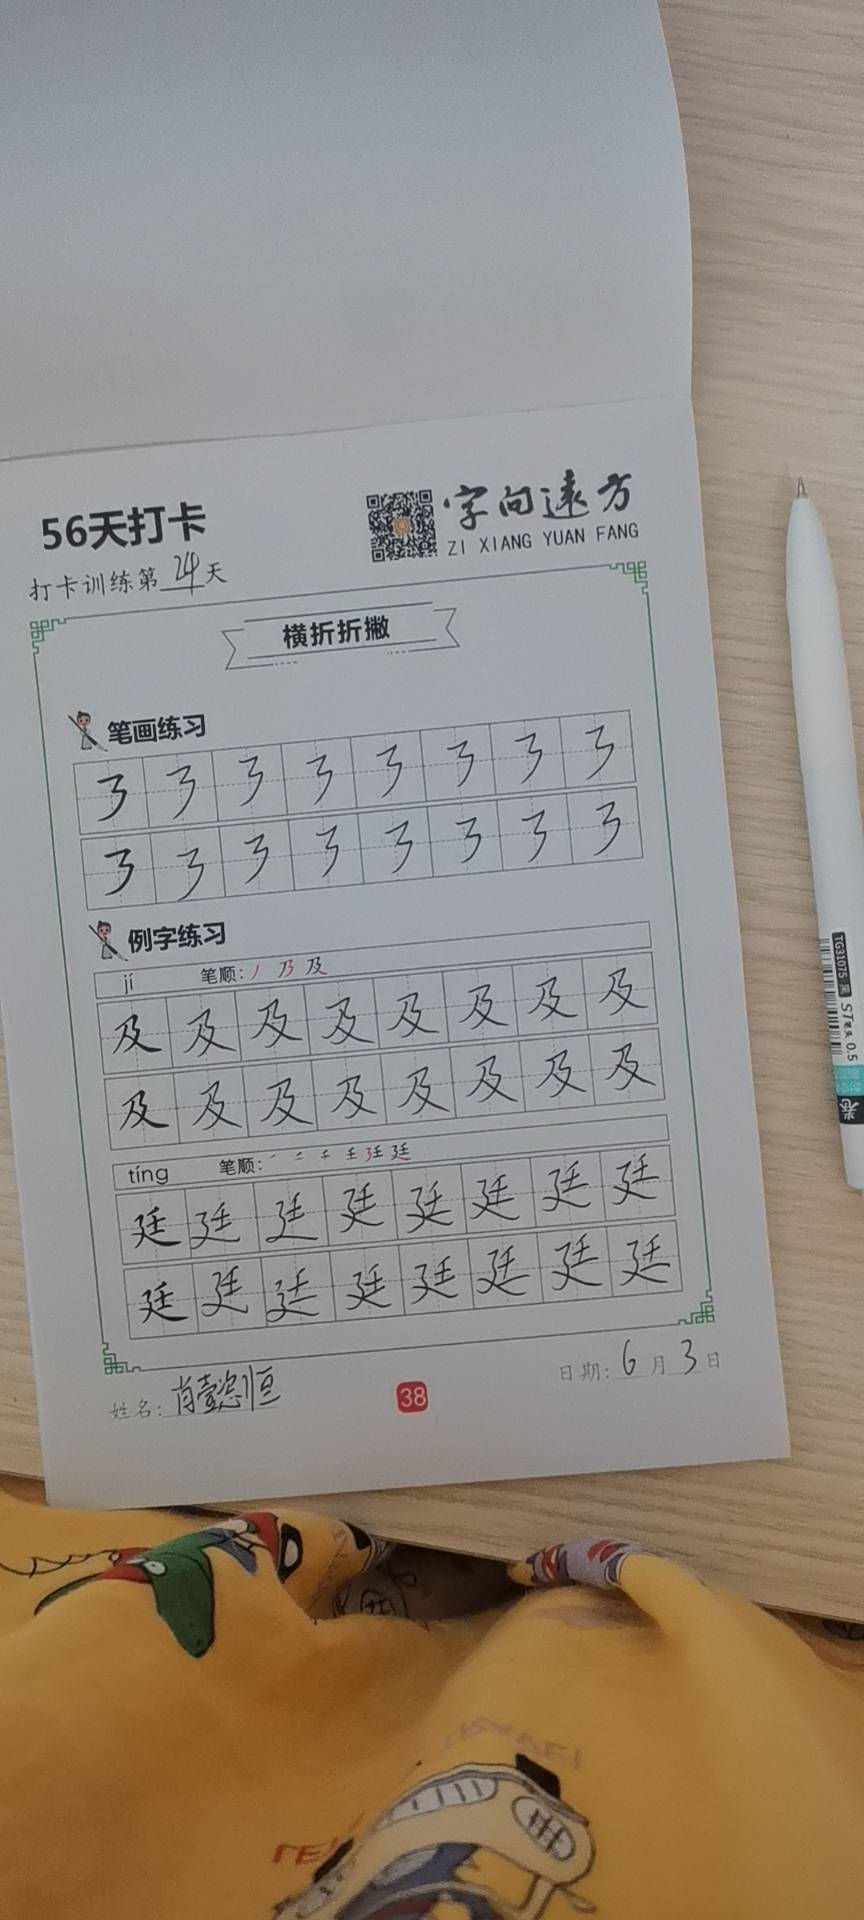 56天打卡
字向远方
ZI XIANG YUAN FANG
打卡训练第24天
横折折撇
笔画练习
㇋ ㇋ ㇋ ㇋ ㇋ ㇋ ㇋ ㇋
㇋ ㇋ ㇋ ㇋ ㇋ ㇋ ㇋ ㇋
例字练习
jí 笔顺: 丿 乃 及
及 及 及 及 及 及 及 及
及 及 及 及 及 及 及 及
tíng 笔顺: 廷
廷 廷 廷 廷 廷 廷 廷 廷
廷 廷 廷 廷 廷 廷 廷 廷
姓名: 肖懿恒
38
日期: 6月3日
TG31075 黑
ST笔头 0.5